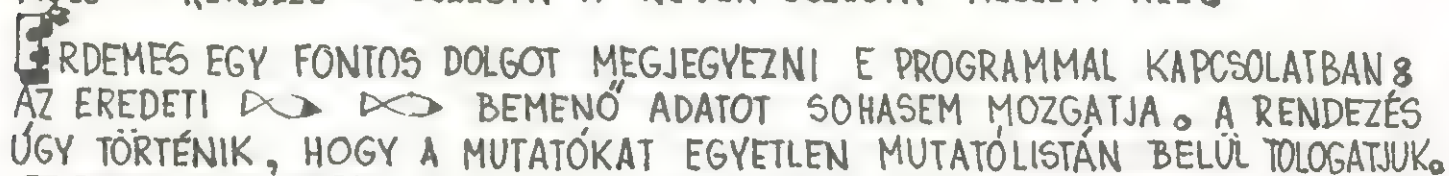 ÉRDEMES EGY FONTOS DOLGOT MEGJEGYEZNI E PROGRAMMAL KAPCSOLATBAN:
AZ EREDETI BEMENŐ ADATOT SOHASEM MOZGATJA. A RENDEZÉS
ÚGY TÖRTÉNIK, HOGY A MUTATÓKAT EGYETLEN MUTATÓLISTÁN BELÜL TOLOGATJUK.